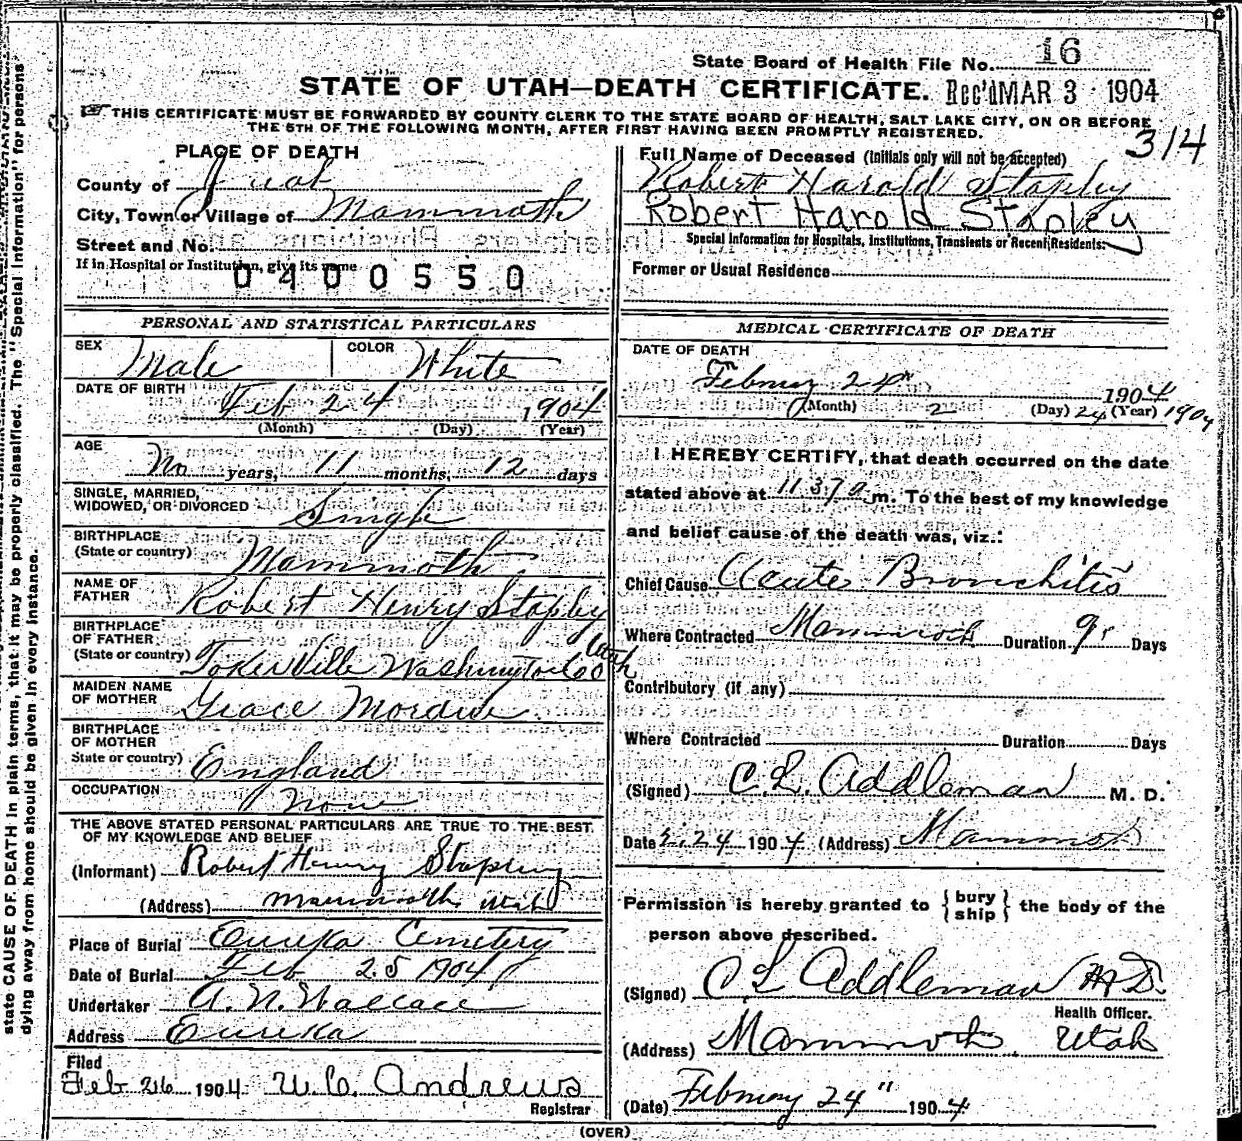 State Board of Health File No. 16
STATE OF UTAH—DEATH CERTIFICATE. Rec'd MAR 3 1904
THIS CERTIFICATE MUST BE FORWARDED BY COUNTY CLERK TO THE STATE BOARD OF HEALTH, SALT LAKE CITY, ON OR BEFORE
THE 5TH OF THE FOLLOWING MONTH, AFTER FIRST HAVING BEEN PROMPTLY REGISTERED.
314
PLACE OF DEATH
County of Juab
City, Town or Village of Mammoth
Street and No.
If in Hospital or Institution, give its name
0400550
Full Name of Deceased (Initials only will not be accepted)
Robert Harold Stapley
Robert Harold Stapley
Special Information for Hospitals, Institutions, Transients or Recent Residents:
Former or Usual Residence
PERSONAL AND STATISTICAL PARTICULARS
SEX Male COLOR White
DATE OF BIRTH Feb 24 1904
(Month) (Day) (Year)
AGE No years, 11 months, 12 days
SINGLE, MARRIED,
WIDOWED, OR DIVORCED Single
BIRTHPLACE
(State or country) Mammoth
NAME OF
FATHER Robert Henry Stapley
BIRTHPLACE
OF FATHER
(State or country) TokerVille Washington Co Utah
MAIDEN NAME
OF MOTHER Grace
BIRTHPLACE
OF MOTHER
State or country) England
OCCUPATION None
THE ABOVE STATED PERSONAL PARTICULARS ARE TRUE TO THE BEST
OF MY KNOWLEDGE AND BELIEF
(Informant) Robert Henry Stapley
(Address) Mammoth Utah
Place of Burial Eureka Cemetery
Date of Burial Feb 25 1904
Undertaker A. N. Wallace
Address Eureka
Filed
Feb 26 1904 W. C. Andrews
Registrar
MEDICAL CERTIFICATE OF DEATH
DATE OF DEATH
February 24th 1904
(Month) 2 (Day) 24 (Year) 1904
I HEREBY CERTIFY, that death occurred on the date
stated above at 11 37 a m. To the best of my knowledge
and belief cause of the death was, viz.:
Chief Cause Acute Bronchitis
Where Contracted Mammoth Duration Days
Contributory (if any)
Where Contracted Duration Days
(Signed) C. L. Addleman M. D.
Date 2.24 1904 (Address) Mammoth
Permission is hereby granted to {bury
ship} the body of the
person above described.
(Signed) C L Addleman M.D.
Health Officer.
(Address) Mammoth Utah
(Date) February 24" 1904
(OVER)
state CAUSE OF DEATH in plain terms, that it may be properly classified. The "Special Information" for persons
dying away from home should be given in every instance.